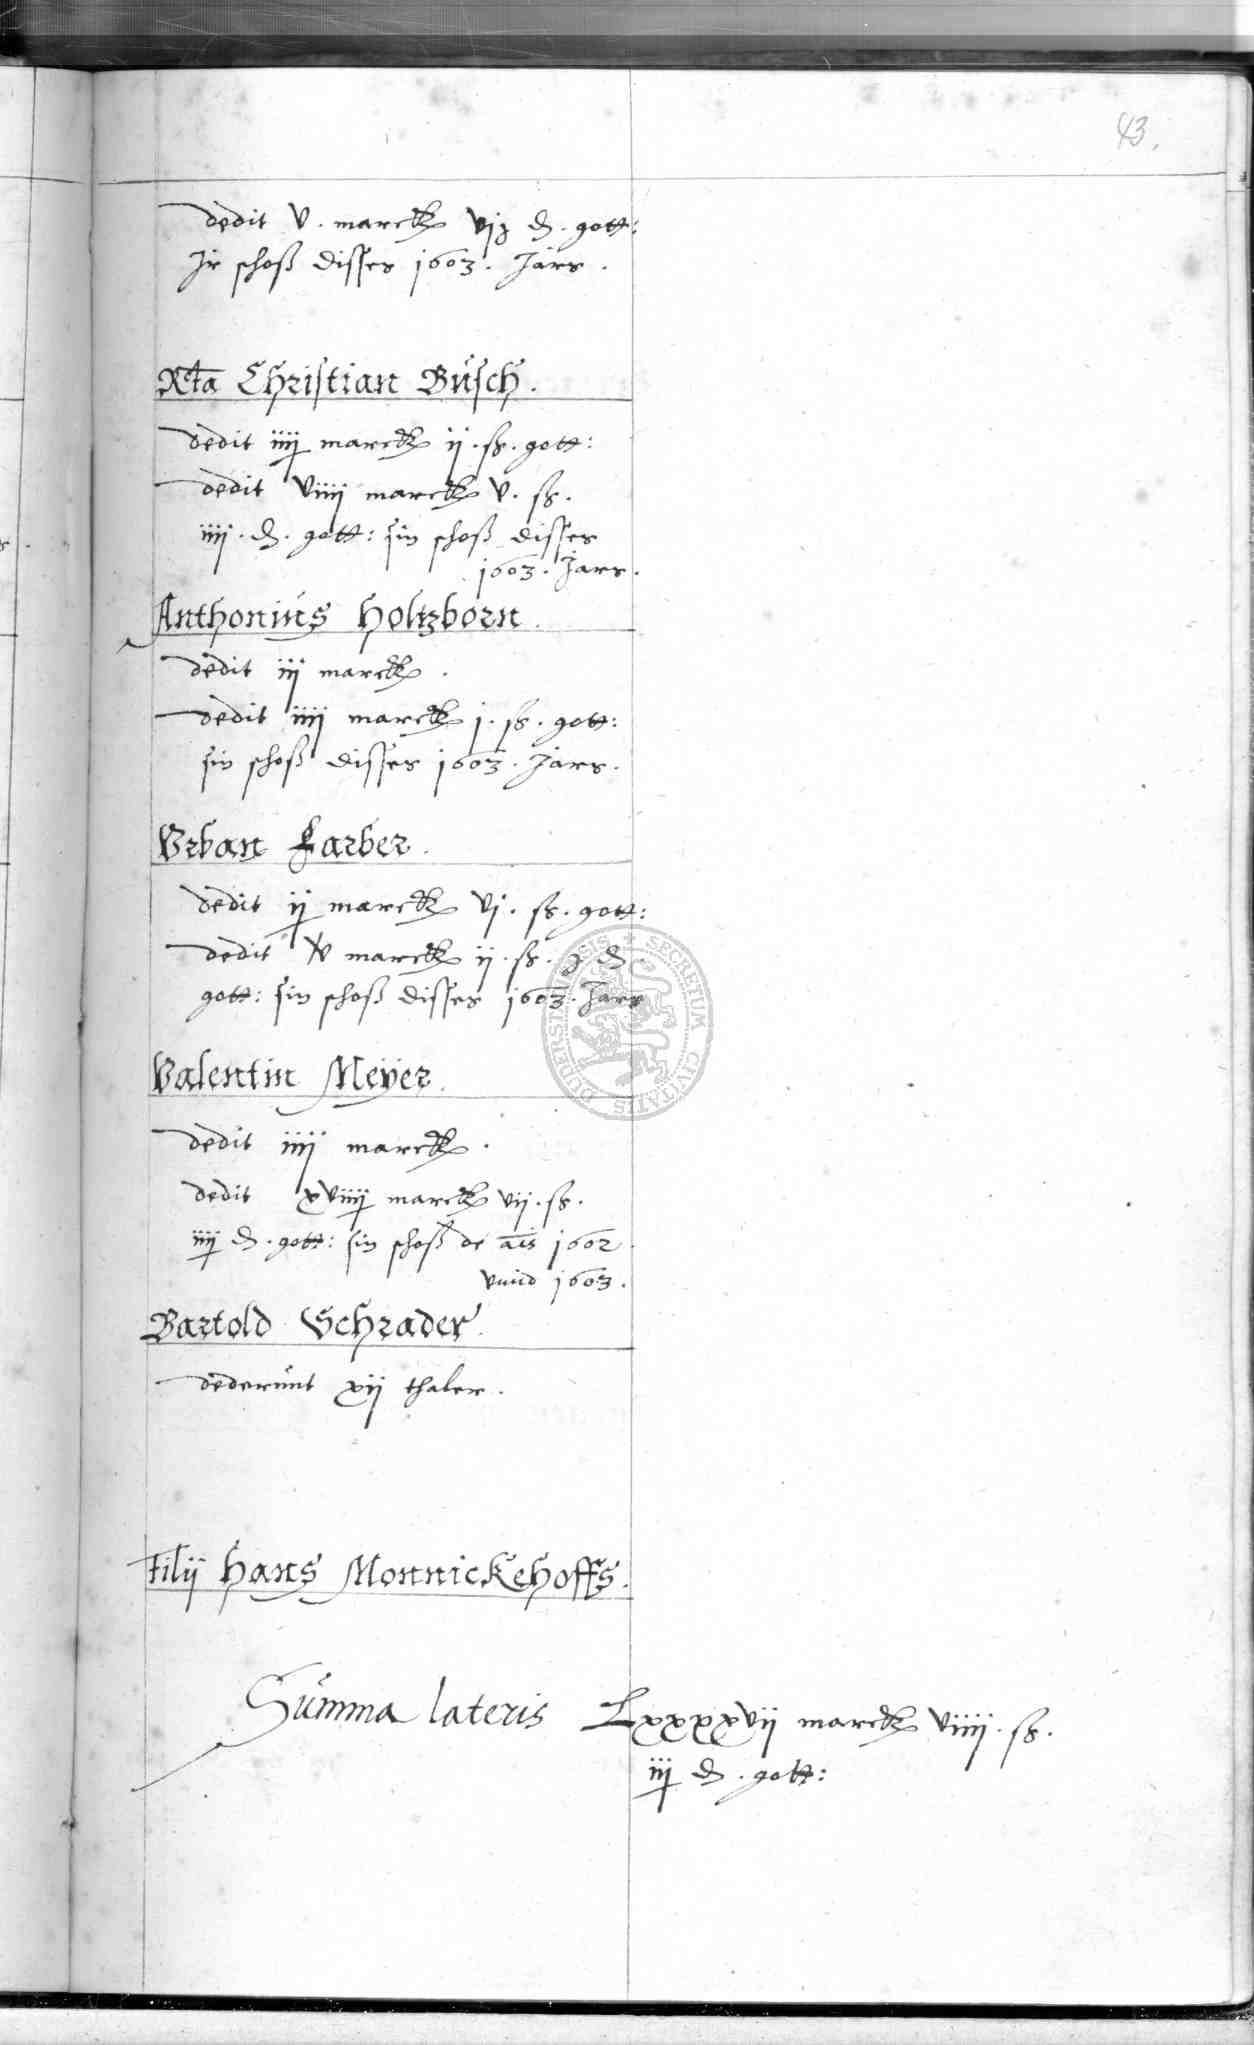 43.
dedit v. marck vij ₰. gott:
Jr schoß disses 1603. Jars.
Rta Christian Busch.
dedit iiij marck ij. ß. gott:
dedit viiij marck v. ß.
iiij. ₰. gott: sin schoß disses
1603. Jars.
Anthonius Holtzborn.
dedit iij marck.
dedit iiij marck j. ß. gott:
sin schoß disses 1603. Jars.
Vrban Farber.
dedit ij marck vj. ß. gott:
dedit v marck ij. ß. ₰.
gott: sin schoß disses 1603. Jars
Valentin Meyer.
dedit iiij marck.
dedit xviiij marck vij. ß.
iiij ₰. gott: sin schoß de ais 1602.
vnnd 1603.
Bartold Schrader.
dederunt xij thaler.
Filij Hans Monnickehoffs.
Summa lateris Lxxxxvij marck viiij. ß.
iiij ₰. gott:
SECRETUM CIVITATIS DUDERSTADENSIS